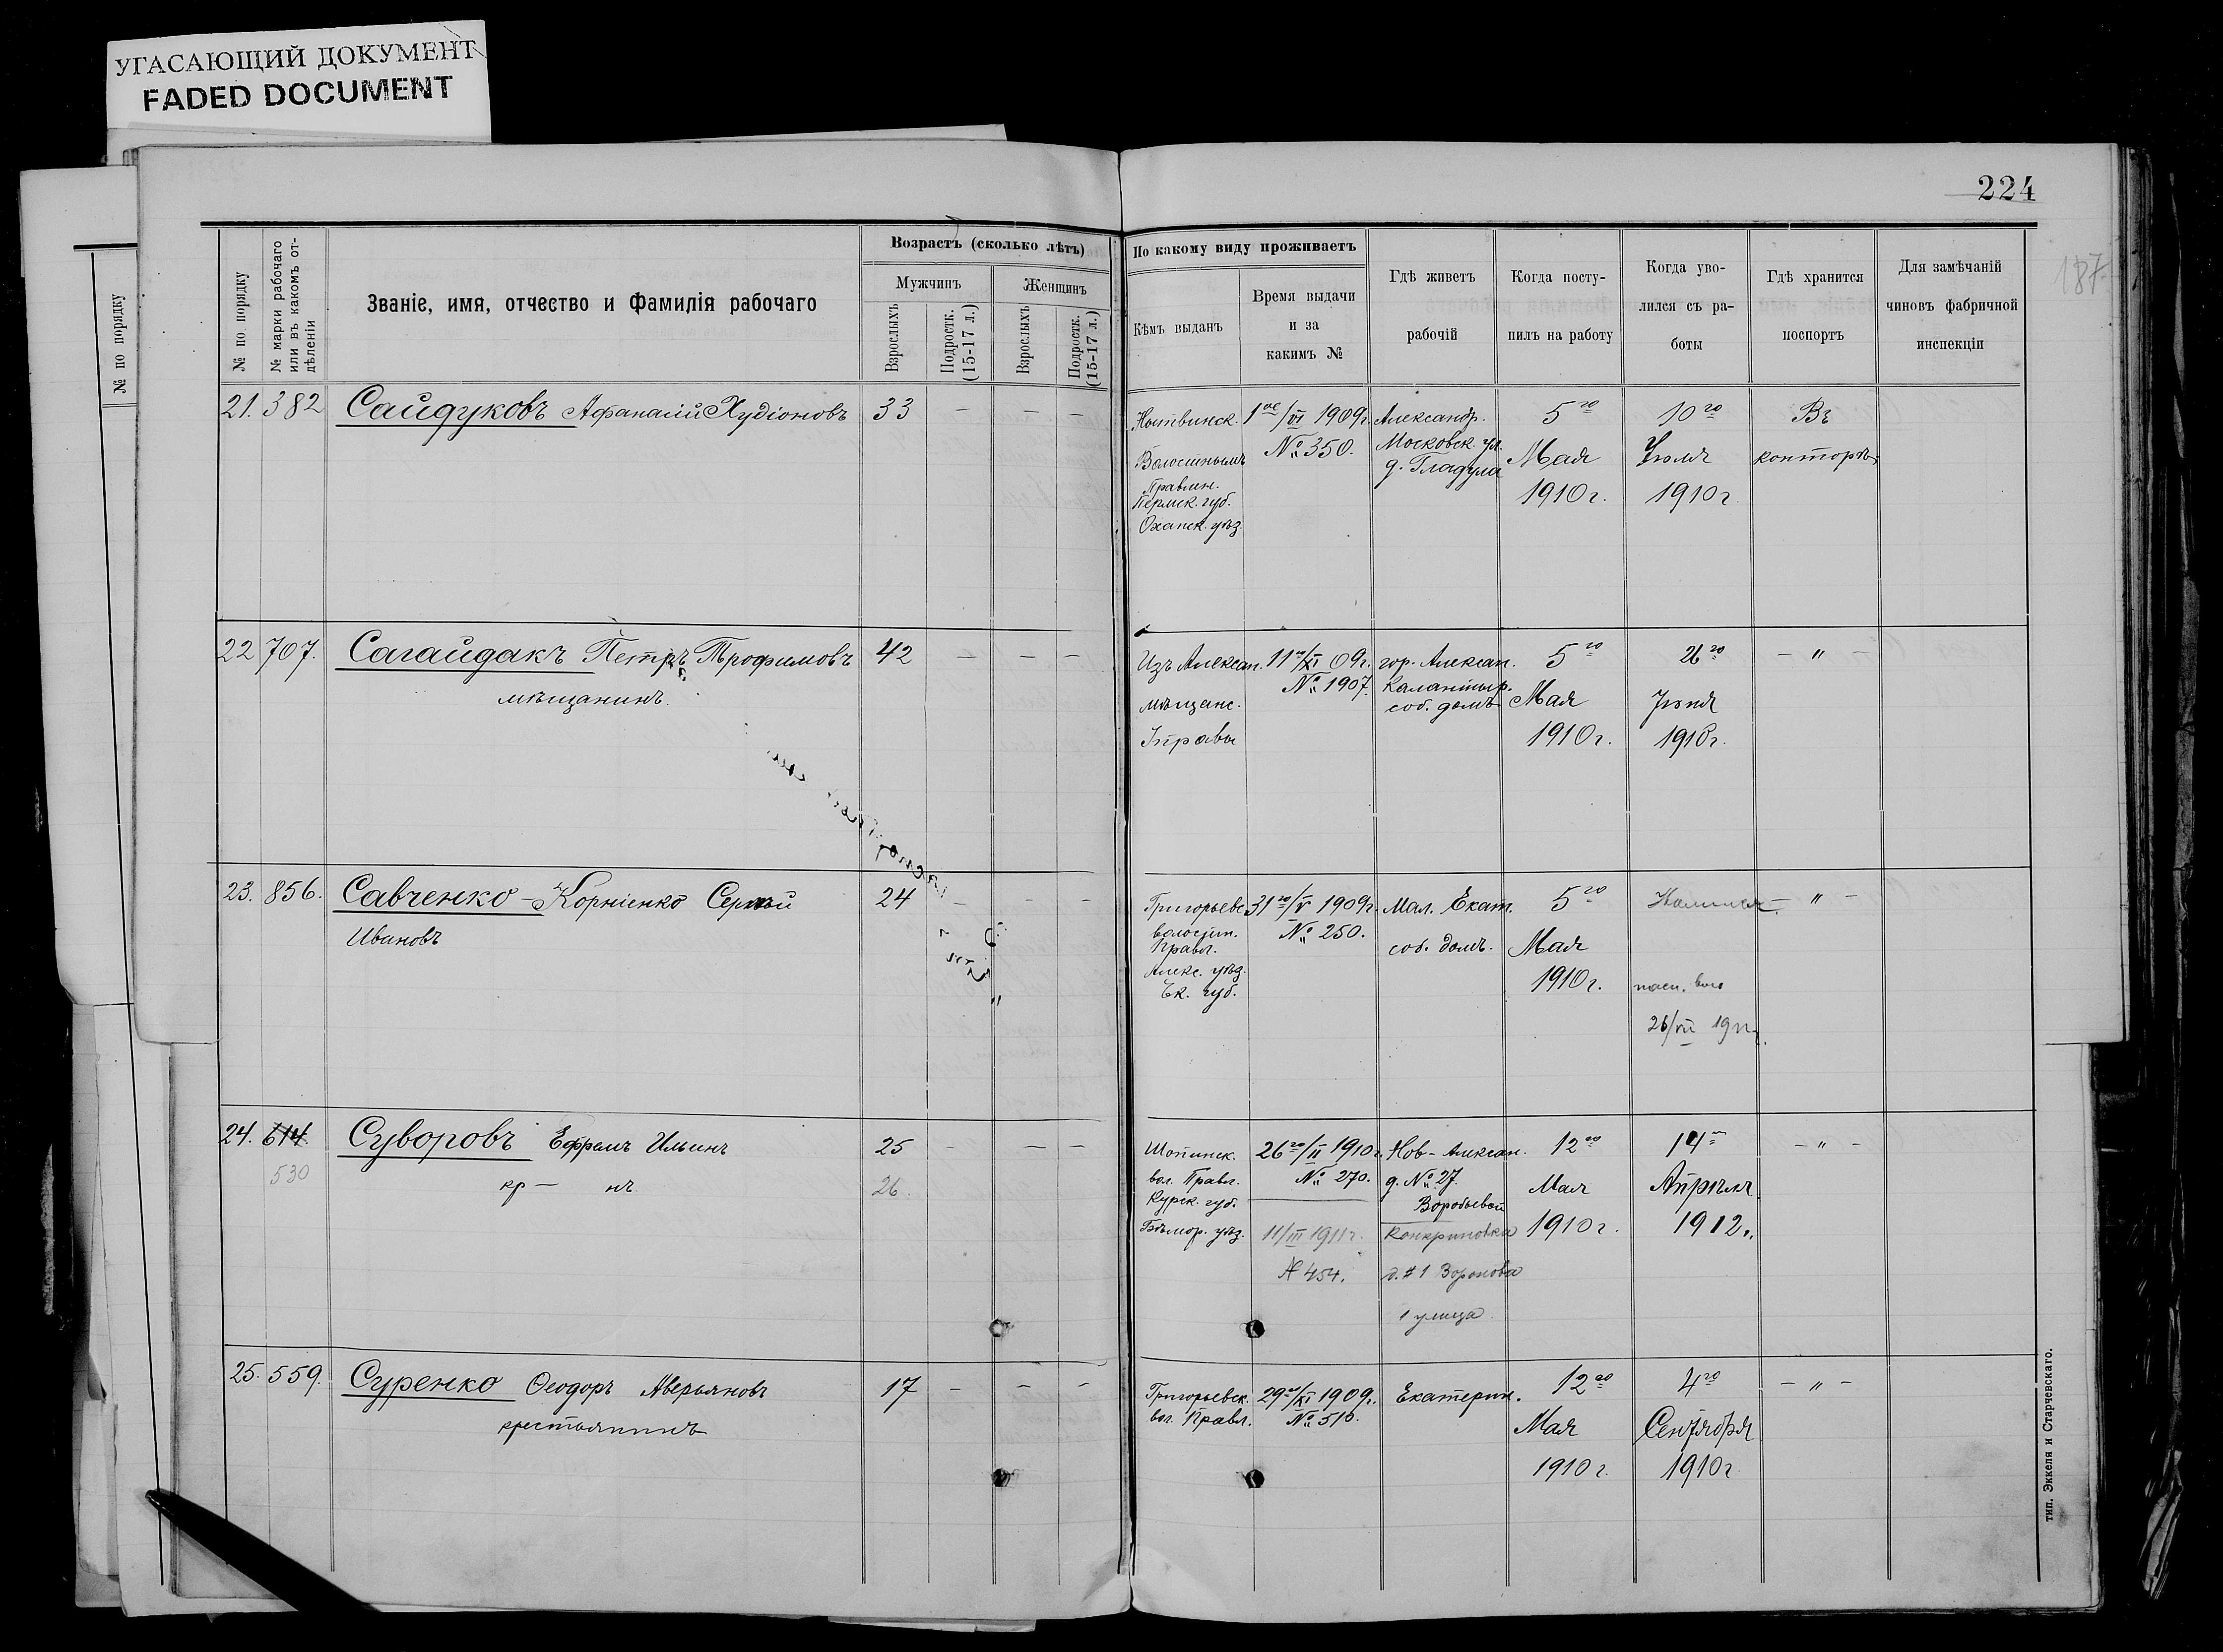 УГАСАЮЩИЙ ДОКУМЕНТ
FADED DOCUMENT
224
187
№ по порядку
№ по порядку
№ марки рабочаго или въ какомъ отдѣленіи
Званіе, имя, отчество и фамилія рабочаго
Возрастъ (сколько лѣтъ)
Мужчинъ
Женщинъ
Взрослыхъ
Подростк. (15-17 л.)
Взрослыхъ
Подростк. (15-17 л.)
По какому виду проживаетъ
Кѣмъ выданъ
Время выдачи
и за
какимъ №
Гдѣ живетъ
рабочій
Когда посту-
пилъ на работу
Когда уво-
лился съ ра-
боты
Гдѣ хранится
поспортъ
Для замѣчаній
чиновъ фабричной
инспекціи
21. 382 Сайдуковъ Афанасій Худіоновъ 33 — — —
Нытвинск.
Волостнымъ
Правлен.
Пермск. губ.
Оханск. уѣз.
1ое/VI 1909г.
№ 350.
Александр.
Московск. ул.
д. Гладула
5го
Мая
1910 г.
10го
Іюля
1910 г.
Въ
конторѣ
22 707. Сагайдакъ Петръ Трофимовъ 42 — — —
мѣщанинъ
Изъ Алексан.
мѣщанс.
Управы
11го/XI 09г.
№ 1907.
гор. Алексан.
Калантыр.
соб. домъ
5го
Мая
1910 г.
26го
Іюня
1910 г.
— " —
23. 856. Савченко-Корніенко Сергѣй 24 — — —
Ивановъ
Григорьевс.
волостн.
Правл.
Алекс. уѣзд.
Ек. губ.
31го/V 1909г.
№ 250.
Мал. Екат.
соб. домъ.
5го
Мая
1910 г.
26/VII
— " —
24. 614. Суворовъ Ефремъ Ильинъ 25 — — —
530 кр — нъ 26.
вол. Правл.
Курск. губ.
уѣз.
26го/II 1910г.
№ 270.
11/III 1911 г.
№ 454.
Нов-Алексан.
д. № 27.
Воробьевой
д. # 1 Воронова
1 улица
12го
Мая
1910 г.
14го
Апрѣля
1912 г.
— " —
25. 559. Суренко Ѳеодоръ Аверьяновъ 17 — — —
крестьянинъ
Григорьевск.
вол. Правл.
29го/XI 1909г.
№ 516.
Екатерин.
12го
Мая
1910 г.
4го
Сентября
1910 г.
— " —
тип. Эккеля и Старчевскаго.